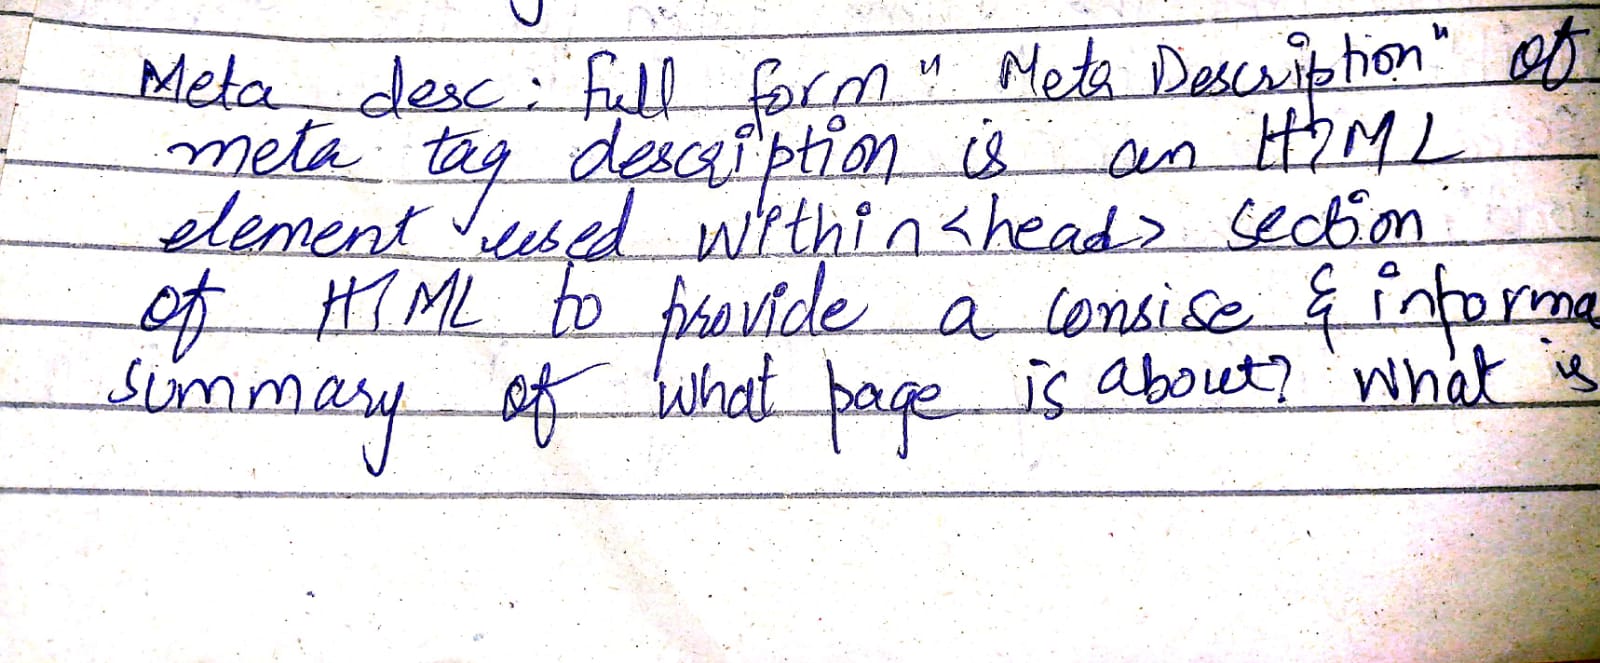 Meta desc : full form " Meta Description" of
meta tag description is an HTML
element used within <head> section
of HTML to provide a consise & informa
summary of what page is about? What is